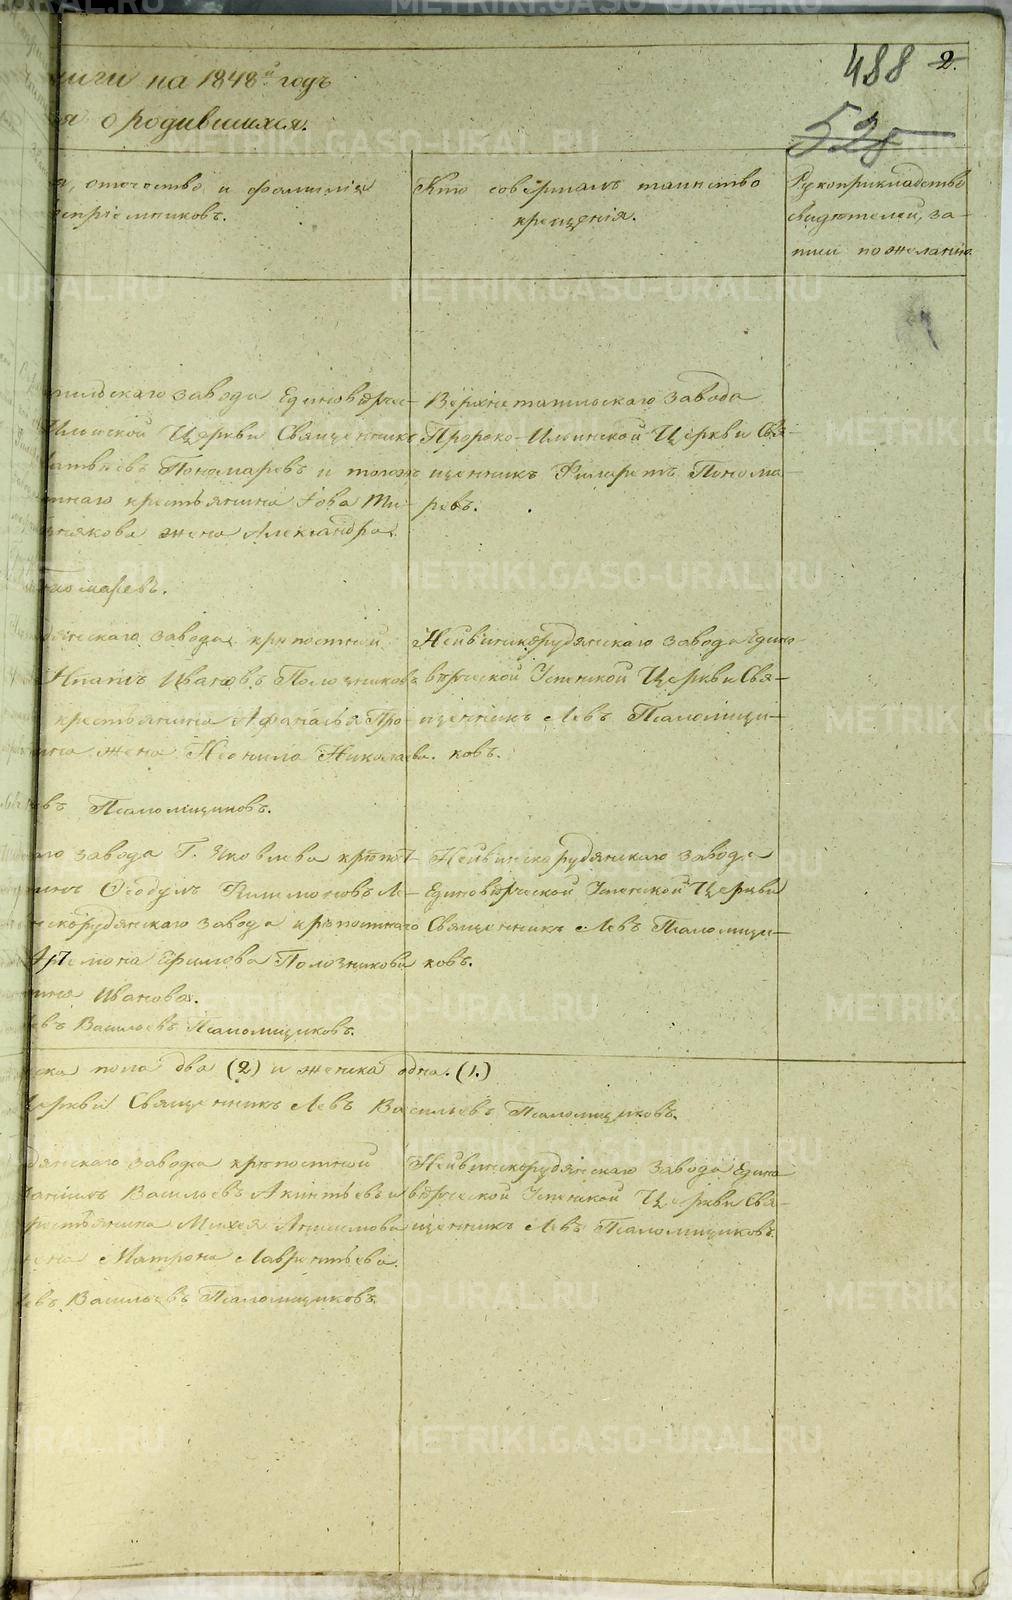 488 2.
528
ниги на 1848й годъ
я о родившихся.
я, отечество и фамилія
спріемниковъ.
Кто совершалъ таинство
крещенія.
Рукоприкладство
свидѣтелей, за-
писи по желанію.
гильскаго завода Единовѣрчес-
Ильинской Церкви Священникъ
Матвѣевъ Пономаревъ и того
тнаго крестьянина Іова Ти-
някова жена Александра.
Верхнетагильскаго завода
Пророко-Ильинской Церкви Свя-
щенникъ Филаретъ Понома
ревъ.
номаревъ.
дянскаго завода крѣпостной
Ипатъ Ивановъ Полозниковъ
крестьянина Афанасья Про-
ина жена Неонила Николаева.
Нейвинскорудянскаго завода Едино
вѣрческой Успенской Церкви Свя-
щенникъ Левъ Псаломщи-
ковъ.
въ Псаломщиковъ.
аго завода Г. Яковлева крѣпост-
инъ Ѳеодулъ Филимоновъ
нскорудянскаго завода крѣпостнаго
Артемона Ефимова Полозникова
Иванова.
Нейвинскорудянскаго завода
Единовѣрческой Успенской Церкви
Священникъ Левъ Псаломщи-
ковъ.
евъ Васильевъ Псаломщиковъ.
ска пола два (2) и женска одна. (1.)
Церкви Священникъ Левъ Васильевъ Псаломщиковъ.
дянскаго завода крѣпостной
Даніилъ Васильевъ Акинтьевъ и
рестьянина Михея Анисимова
жена Матрона Лаврентьева.
Нейвинскорудянскаго завода Едино
вѣрческой Успенской Церкви Свя-
щенникъ Левъ Псаломщиковъ.
Левъ Васильевъ Псаломщиковъ.
METRIKI.GASO-URAL.RU